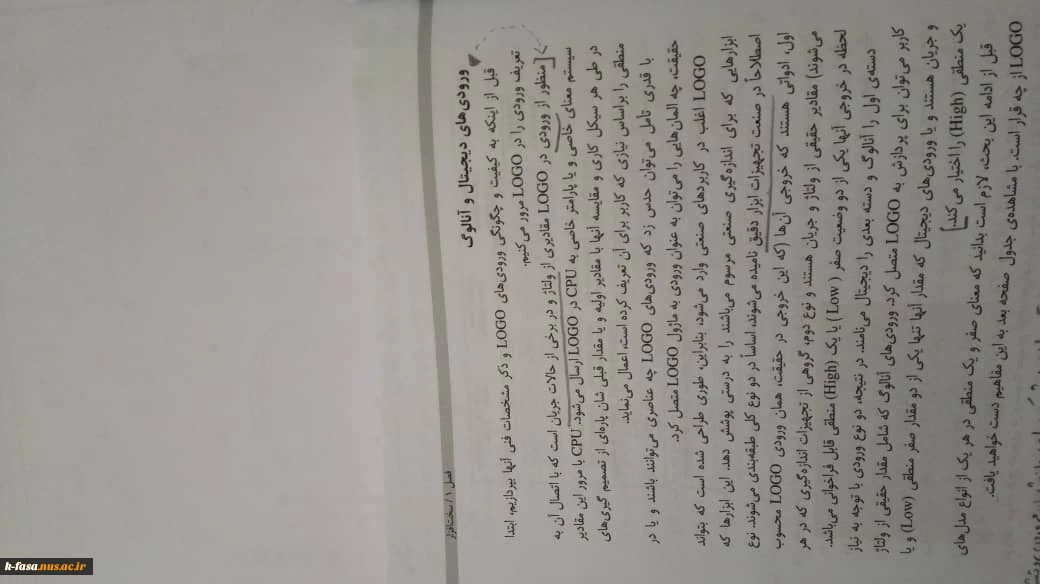 فصل ۱ / سخت‌افزار
ورودی‌های دیجیتال و آنالوگ
قبل از اینکه به کیفیت و چگونگی ورودی‌های LOGO و ذکر مشخصات فنی آنها بپردازیم، ابتدا
تعریف ورودی را در LOGO مرور می‌کنیم.
[منظور از ورودی در LOGO مقادیری از ولتاژ و در برخی از حالات جریان است که با اتصال آن به
سیستم معنای خاصی و یا پارامتر خاصی به CPU در LOGO ارسال می‌شود. CPU با مرور این مقادیر
در طی هر سیکل کاری و مقایسه آنها با مقادیر اولیه و یا مقدار قبلی شان پاره‌ای از تصمیم گیری‌های
منطقی را براساس نیازی که کاربر برای آن تعریف کرده است، اعمال می‌نماید.
با قدری تامل می‌توان حدس زد که ورودی‌های LOGO چه عناصری می‌توانند باشند و یا در
حقیقت، چه المان‌هایی را می‌توان به عنوان ورودی به ماژول LOGO متصل کرد.
LOGO اغلب در کاربردهای صنعتی وارد می‌شود، بنابراین، طوری طراحی شده است که بتواند
ابزارهایی که برای اندازه‌گیری صنعتی مرسوم می‌باشند را به درستی پوشش دهد. این ابزارها که
اصطلاحاً در صنعت تجهیزات ابزار دقیق نامیده می‌شوند، اساساً در دو نوع کلی طبقه‌بندی می‌شوند. نوع
اول، ادواتی هستند که خروجی آن‌ها (که این خروجی در حقیقت، همان ورودی LOGO محسوب
می‌شوند) مقادیر حقیقی از ولتاژ و جریان هستند و نوع دوم، گروهی از تجهیزات اندازه‌گیری که در هر
لحظه در خروجی آنها یکی از دو وضعیت صفر (Low) یا یک (High) منطقی قابل فراخوانی می‌باشد.
دسته‌ی اول را آنالوگ و دسته بعدی را دیجیتال می‌نامند. در نتیجه، دو نوع ورودی با توجه به نیاز
کاربر می‌توان برای پردازش به LOGO متصل کرد. ورودی‌های آنالوگ که شامل مقدار حقیقی از ولتاژ
و جریان هستند و یا ورودی‌های دیجیتال که مقدار آنها تنها یکی از دو مقدار صفر منطقی (Low) و یا
یک منطقی (High) را اختیار می کند]
قبل از ادامه این بحث، لازم است بدانید که معنای صفر و یک منطقی در هر یک از انواع مدل‌های
LOGO از چه قرار است. با مشاهده‌ی جدول صفحه بعد به این مفاهیم دست خواهید یافت.
k-fasa.nus.ac.ir